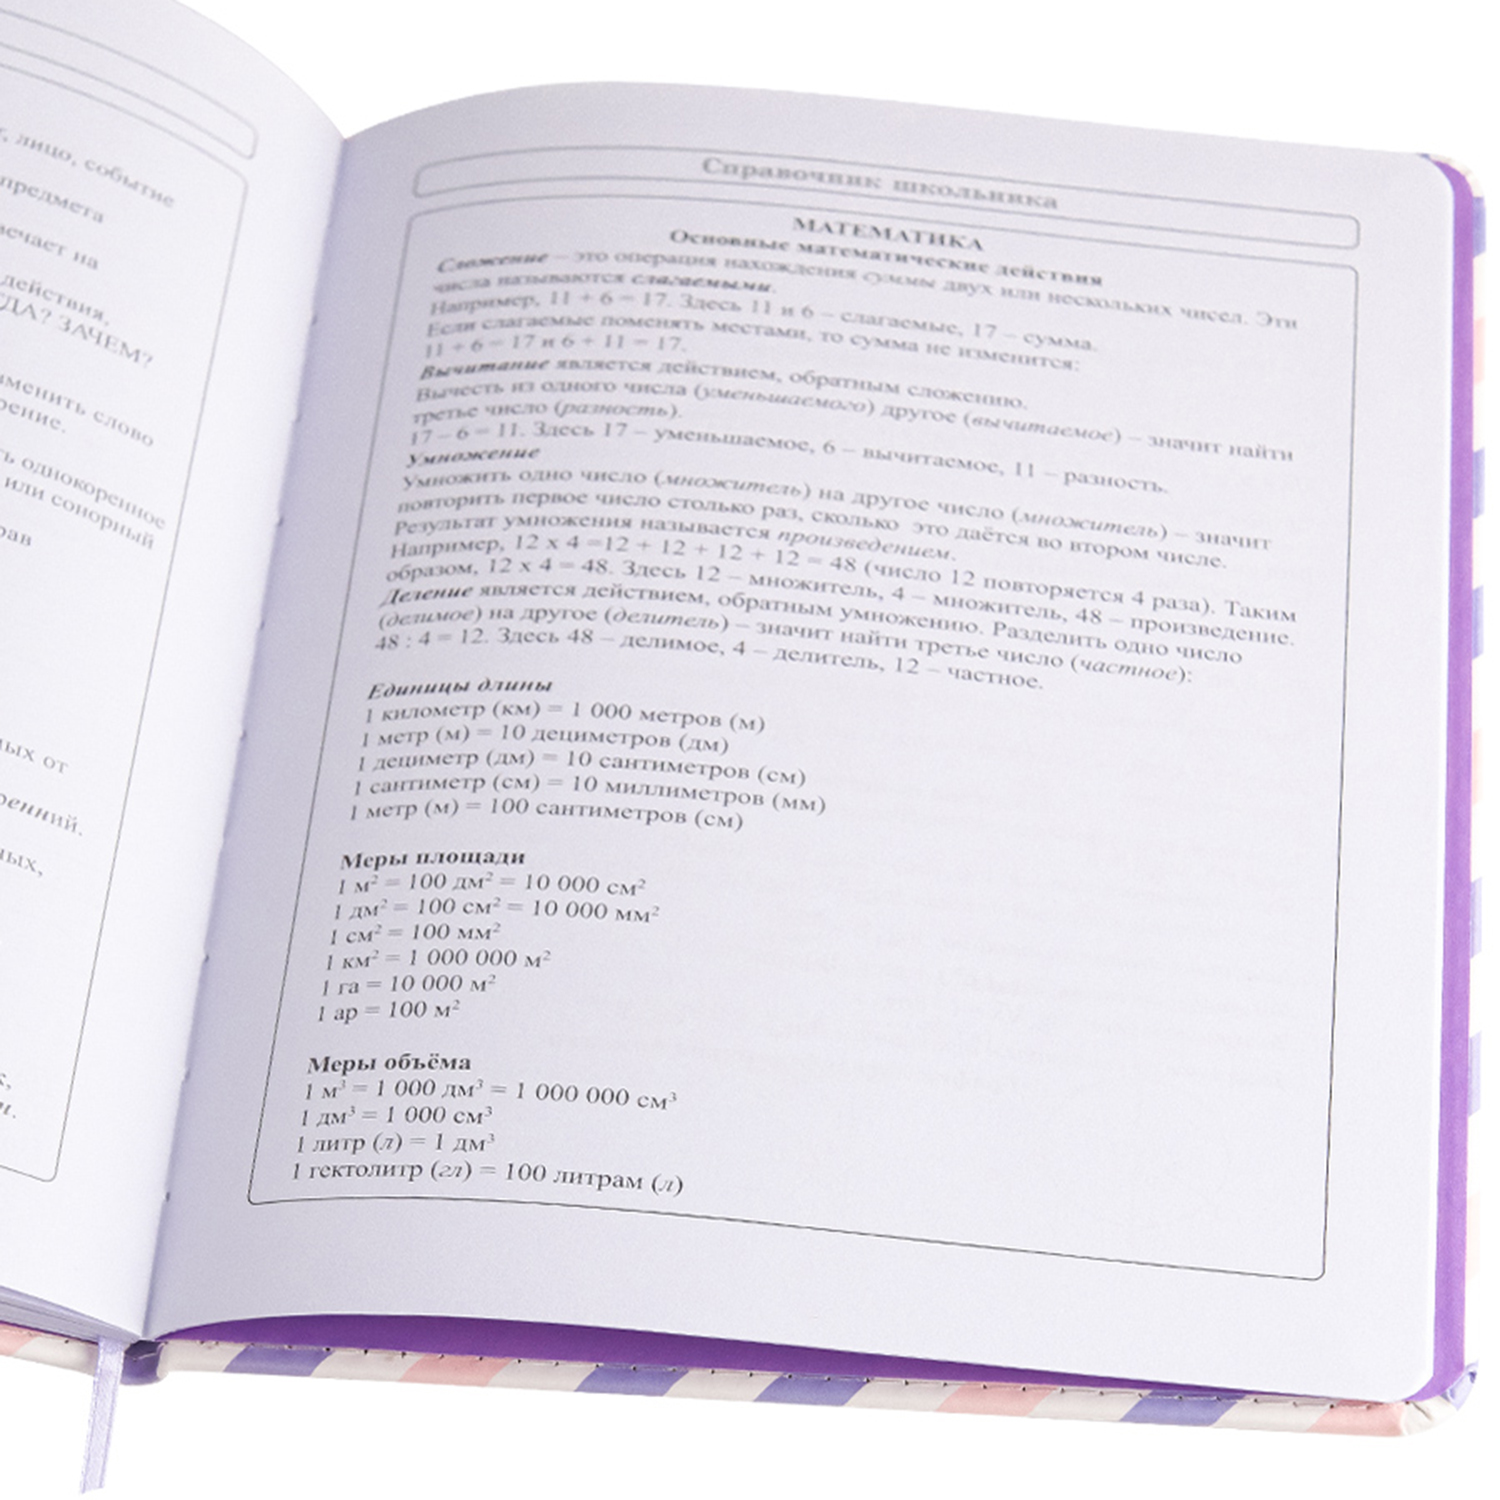 , лицо, событие
предмета
ечает на
действия,
ГДА? ЗАЧЕМ?
менить слово
рение.
ть однокоренное
или сонорный
рав
ых от
оренний.
ных,
Справочник школьника
МАТЕМАТИКА
Основные математические действия
Сложение – это операция нахождения суммы двух или нескольких чисел. Эти
числа называются слагаемыми.
Например, 11 + 6 = 17. Здесь 11 и 6 – слагаемые, 17 – сумма.
Если слагаемые поменять местами, то сумма не изменится:
11 + 6 = 17 и 6 + 11 = 17.
Вычитание является действием, обратным сложению.
Вычесть из одного числа (уменьшаемого) другое (вычитаемое) – значит найти
третье число (разность).
17 – 6 = 11. Здесь 17 – уменьшаемое, 6 – вычитаемое, 11 – разность.
Умножение
Умножить одно число (множитель) на другое число (множитель) – значит
повторить первое число столько раз, сколько это даётся во втором числе.
Результат умножения называется произведением.
Например, 12 х 4 =12 + 12 + 12 + 12 = 48 (число 12 повторяется 4 раза). Таким
образом, 12 х 4 = 48. Здесь 12 – множитель, 4 – множитель, 48 – произведение.
Деление является действием, обратным умножению. Разделить одно число
(делимое) на другое (делитель) – значит найти третье число (частное):
48 : 4 = 12. Здесь 48 – делимое, 4 – делитель, 12 – частное.
Единицы длины
1 километр (км) = 1 000 метров (м)
1 метр (м) = 10 дециметров (дм)
1 дециметр (дм) = 10 сантиметров (см)
1 сантиметр (см) = 10 миллиметров (мм)
1 метр (м) = 100 сантиметров (см)
Меры площади
1 м² = 100 дм² = 10 000 см²
1 дм² = 100 см² = 10 000 мм²
1 см² = 100 мм²
1 км² = 1 000 000 м²
1 га = 10 000 м²
1 ар = 100 м²
Меры объёма
1 м³ = 1 000 дм³ = 1 000 000 см³
1 дм³ = 1 000 см³
1 литр (л) = 1 дм³
1 гектолитр (гл) = 100 литрам (л)